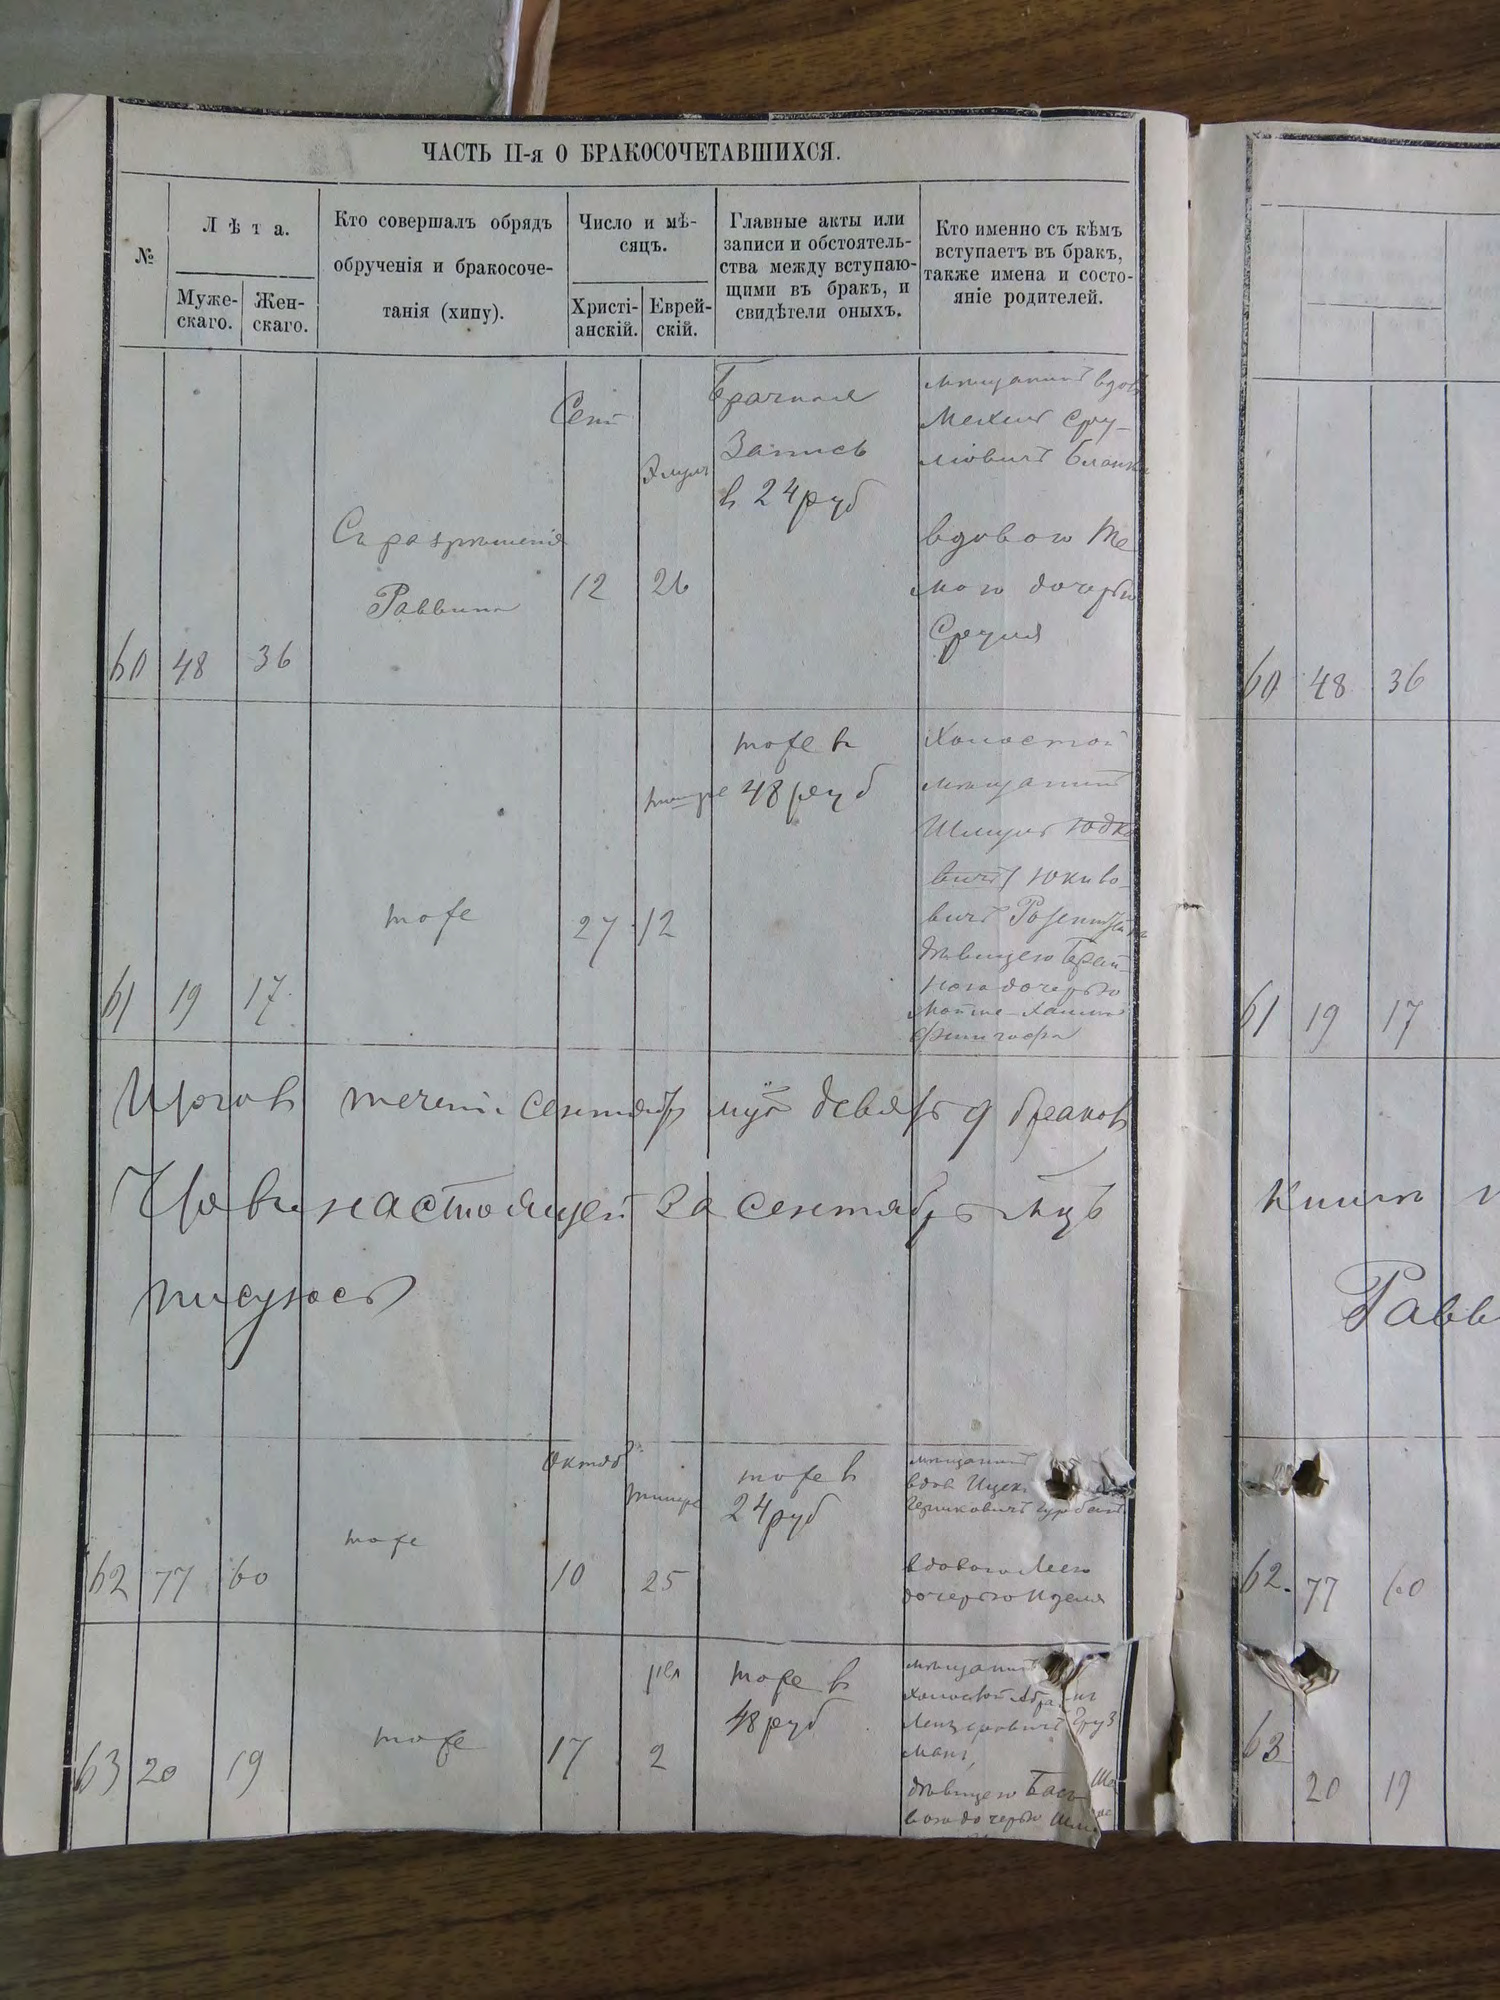 ЧАСТЬ II-я О БРАКОСОЧЕТАВШИХСЯ.
№
Лѣта.
Муже-
скаго.
Жен-
скаго.
Кто совершалъ обрядъ
обрученія и бракосоче-
танія (хипу).
Число и мѣ-
сяцъ.
Христі-
анскій.
Еврей-
скій.
Главные акты или
записи и обстоятель-
ства между вступаю-
щими въ бракъ, и
свидѣтели оныхъ.
Кто именно съ кѣмъ
вступаетъ въ бракъ,
также имена и состо-
яніе родителей.
60
48
36
Съ разрѣшенія
Раввина
Сент
12
Элулъ
26
Брачная
Запись
в 24 руб
мѣщанинъ вдов
Сру-
лiовичъ Бланк
вдовою
дочерью
Сруля
61
19
17
тоже
27
тишре
12
тоже в
48 руб
Холостой
мѣщанинъ
Шмуль Юдко
вичъ Юкиво-
вичъ
дѣвицею Брей-
ною дочерью
Итого в течени сентябр мцъ девять 9 браков
настоящей за сентябрь мцъ
писуюсь
62
77
60
тоже
Октяб
10
тишре
25
тоже в
24 руб
мѣщанинъ
вдов Ицек
Гершковичъ
вдовою Леею
дочерью Иделя
63
20
19
тоже
17
2
тоже в
48 руб
мѣщанинъ
холостой Абрам
Лейзеровичъ Груз
манъ,
дѣвицею Бась Ше
вою дочерью
60
48
36
61
19
17
книги
Равв
62.
77
60
63
20
19